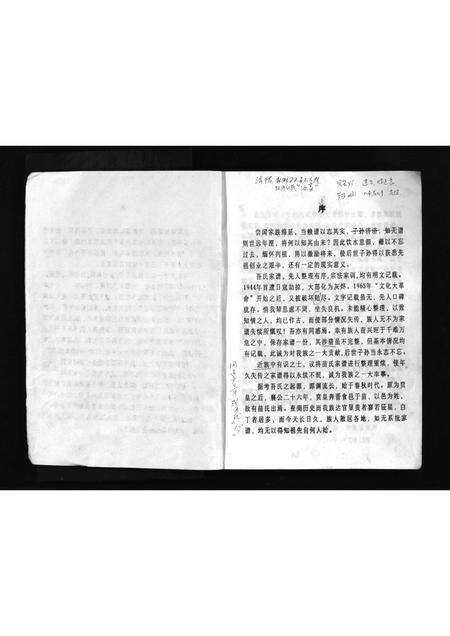 序
尝闻家族繁延，当赖谱以志其实，子孙骄骄；如无谱
则世远年湮，将何以知其由来？因此饮水思源，雕以不忘
过去，缅怀列祖，用以激励将来，使后世子孙得以获悉先
祖创业之艰辛，还有一定的现实意义。
吾氏家谱，先人整理有序，宗法家训，均有明文记载。
1944年首遭日寇劫掠，大部化为灰烬。1965年“文化大革
命”开始之后，又被破坏殆尽。文字记载甚无，先人口碑
犹存。惜我辈思虑不周，坐失良机。未能精心整理，以致
知情之人，均已作古，而使部分情况失传，族人无不为家
谱失续所慨叹！吾亦有同感焉。幸有族人苗兴旺于千难万
危之中，保存家谱一份，其抑稿虽不完整，但基本情况均
有记载，此诚为对我族之一大贡献，后世子孙当永志不忘。
近族中有识之士，议将苗氏家谱进行整理重续，使年
久失传之家谱得以永续不视，诚为我族之一大幸事。
据考吾氏之起源，源渊流长，始于春秋时代。原为贲
皇之后，襄公二十六年，贲皇奔晋食邑于苗，以邑为姓，
故有苗氏出焉。查阅历史而我族达官显贵者寥若辰星，白
丁者居多，而今天长日久，族人散居各地，如无系统家
谱，均无以得知祖先自何人始。